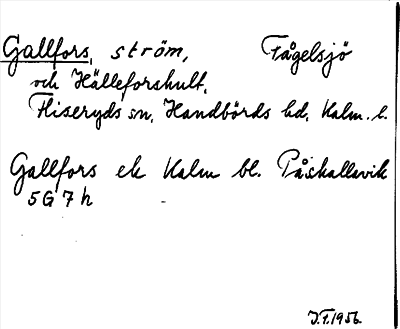 Gallfors, ström, Fågelsjö
och Hälleforshult,
Fliseryds sn, Handbörds hd, Kalm. l.
Gallfors ek Kalm bl. Påskallavik
5G7h
J.f.1956.